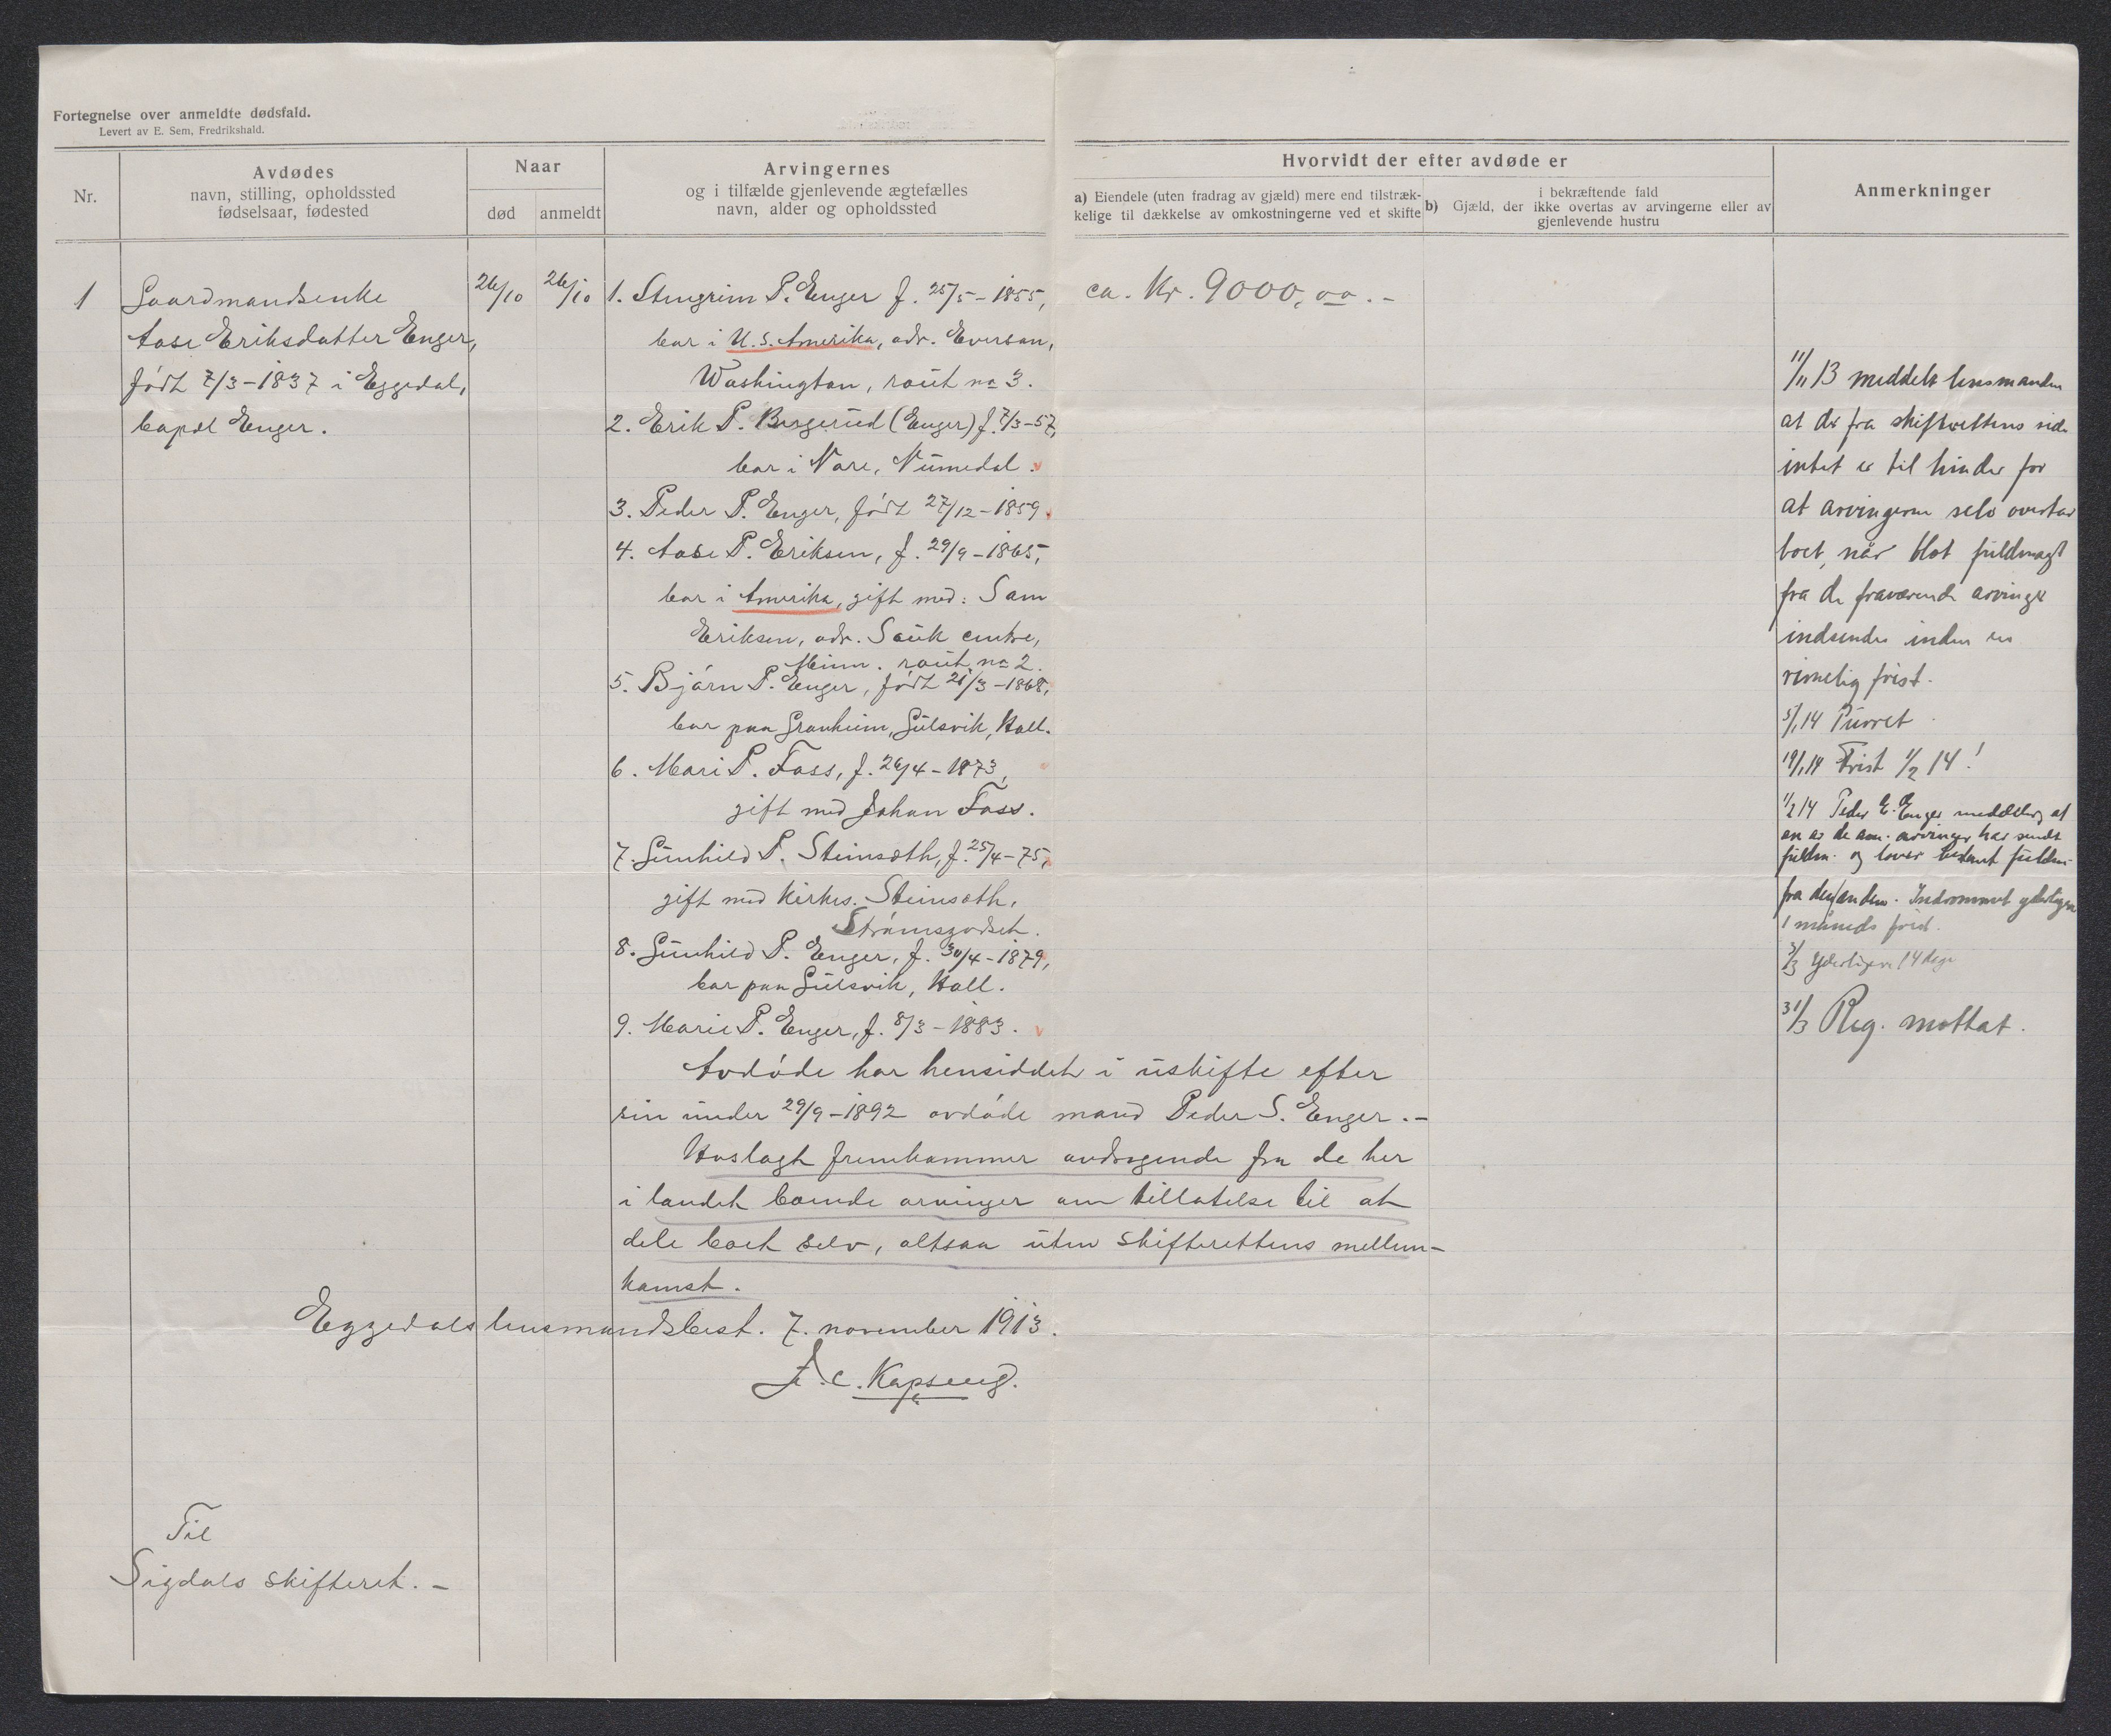 Fortegnelse over anmeldte dødsfald.
Levert av E. Sem, Fredrikshald.
Nr.
Avdødes
navn, stilling, opholdssted
fødselsaar, fødested
Naar
død
anmeldt
Arvingernes
og i tilfælde gjenlevende ægtefælles
navn, alder og opholdssted
Hvorvidt der efter avdøde er
a) Eiendele (uten fradrag av gjæld) mere end tilstræk-
kelige til dækkelse av omkostningerne ved et skifte
i bekræftende fald
b) Gjæld, der ikke overtas av arvingerne eller av
gjenlevende hustru
Anmerkninger
1
Gaardmandsenke
Aase Eriksdatter Enger,
født 7/3-1837 i Eggedal,
bopæl Enger.
26/10
26/10
1. Stengrim P. Enger f. 25/5-1855,
bor i U.S. Amerika, adr. Everson,
Washington, rout no 3.
2. Erik P. Bergerud (Enger) f. 7/3-57,
bor i Nore, Numedal.
3. Peder P. Enger, født 27/12-1859.
4. Aase P. Eriksen, f. 29/9-1865,
bor i Amerika, gift med: Sam
Eriksen, adr. Sauk centre,
Minn. rout no 2.
5. Bjørn P. Enger, født 21/3-1868,
bor paa Granheim, Gulsvik, Hall.
6. Mari P. Foss, f. 26/4-1873,
gift med Johan Foss.
7. Gunhild P. Steinsæth, f. 25/4-75,
gift med kirkes. Steinsæth,
Strømsgodset.
8. Gunhild P. Enger, f. 30/4-1879,
bor paa Gulsvik, Hall.
9. Marie P. Enger, f. 8/3-1883.
Avdøde har hensiddet i uskifte efter
sin under 29/9-1892 avdøde mand Peder S. Enger.-
Hoslagt fremkommer andragende fra de her
i landet boende arvinger om tillatelse til at
dele boet selv, altsaa uten skifterettens mellem-
komst.
Eggedals lensmandsbest. 7. november 1913.
F. C. Kopseng.
Til
Sigdals skifteret.-
ca. Kr. 9000,00.-
11/11 13 meddelt lensmanden
at der fra skifterettens side
intet er til hinder for
at arvingerne selv overtar
boet, når blot fuldmagt
fra de fraværende arvinger
indsendes inden en
rimelig frist.
5/1 14 Purret
19/1 14 Frist 1/2 14!
1/2 14 Peder E. Enger meddeler, at
en av de am. arvinger har sendt
fuldm. og lover bestemt fuldm.
fra den anden. Indrømmet yderligere
1 måneds frist.
3/3 Yderligere 14 dage
31/3 Reg. mottat.